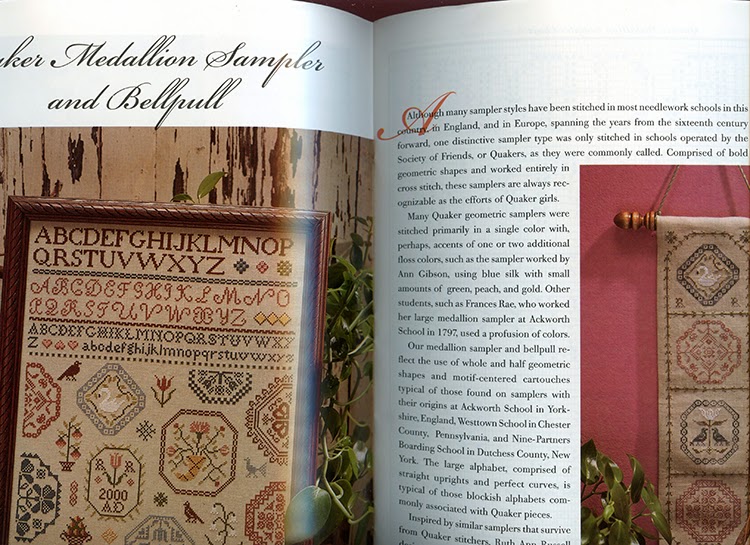 Medallion Sampler
and Bellpull
Although many sampler styles have been stitched in most needlework schools in this
country, in England, and in Europe, spanning the years from the sixteenth century
forward, one distinctive sampler type was only stitched in schools operated by the
Society of Friends, or Quakers, as they were commonly called. Comprised of bold
geometric shapes and worked entirely in
cross stitch, these samplers are always rec-
ognizable as the efforts of Quaker girls.
Many Quaker geometric samplers were
stitched primarily in a single color with,
perhaps, accents of one or two additional
floss colors, such as the sampler worked by
Ann Gibson, using blue silk with small
amounts of green, peach, and gold. Other
students, such as Frances Rae, who worked
her large medallion sampler at Ackworth
School in 1797, used a profusion of colors.
Our medallion sampler and bellpull re-
flect the use of whole and half geometric
shapes and motif-centered cartouches
typical of those found on samplers with
their origins at Ackworth School in York-
shire, England, Westtown School in Chester
County, Pennsylvania, and Nine-Partners
Boarding School in Dutchess County, New
York. The large alphabet, comprised of
straight uprights and perfect curves, is
typical of those blockish alphabets com-
monly associated with Quaker pieces.
Inspired by similar samplers that survive
from Quaker stitchers, Ruth Ann Russell
ABCDEFGHIJKLMNOP
QRSTUVWXYZ
ABCDEFGHIJKLMNO
PQRSTUVWXYZ
ABCDEFGHIJKLMNOPQRSTUVWXYZ
abcdefghijklmnopqrstuvwxyz
R R
2000
AD
R